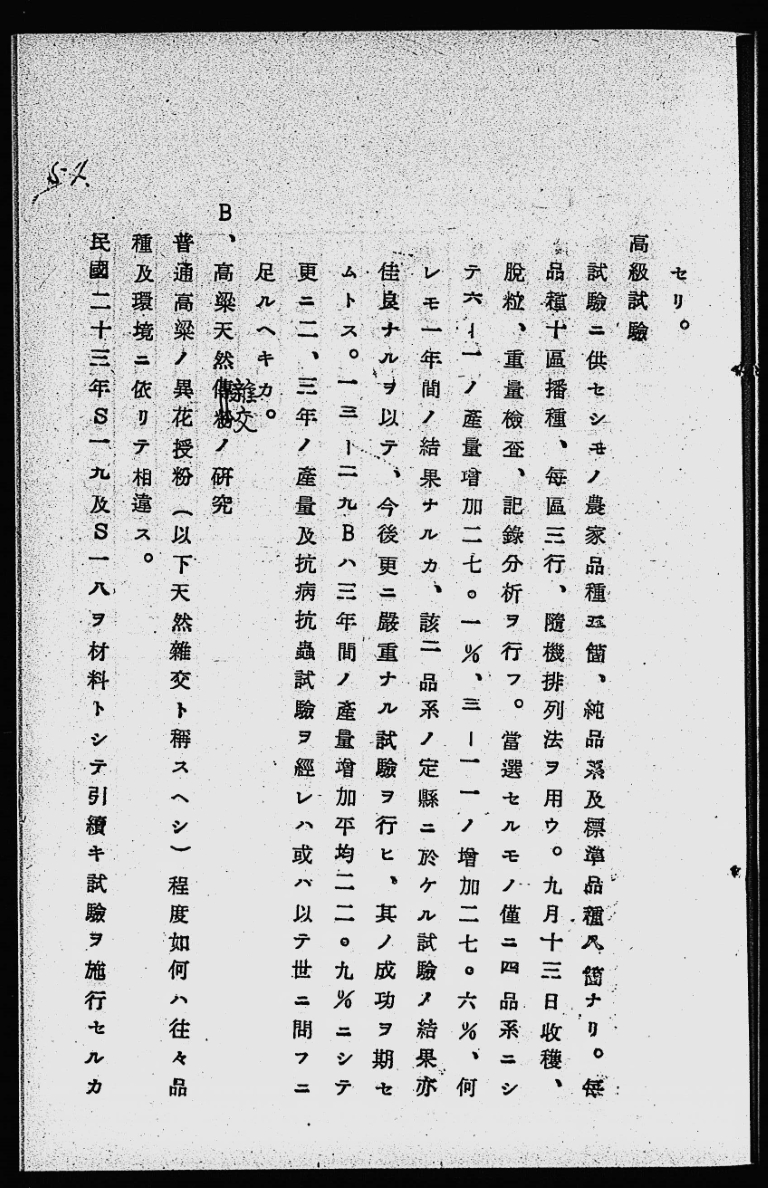 セリ。
高級試驗
試驗ニ供セシモノ農家品種五箇、純品系及標準品種八箇ナリ。每
品種十區播種、每區三行、隨機排列法ヲ用ウ。九月十三日收穫、
脫粒、重量檢查、記錄分析ヲ行フ。當選セルモノ僅ニ四品系ニシ
テ六ー一ノ產量增加二七。一%、三ー一一ノ增加二七。六%、何
レモ一年間ノ結果ナルカ、該二品系ノ定縣ニ於ケル試驗ノ結果亦
佳良ナルヲ以テ、今後更ニ嚴重ナル試驗ヲ行ヒ、其ノ成功ヲ期セ
ムトス。一三ー二九Bハ三年間ノ產量增加平均二二。九%ニシテ
更ニ二、三年ノ產量及抗病抗蟲試驗ヲ經レハ或ハ以テ世ニ問フニ
足ルヘキカ。
B、高粱天然雜交ノ研究
普通高粱ノ異花授粉(以下天然雜交ト稱スヘシ)程度如何ハ往々品
種及環境ニ依リテ相違ス。
民國二十三年S一九及S一八ヲ材料トシテ引續キ試驗ヲ施行セルカ